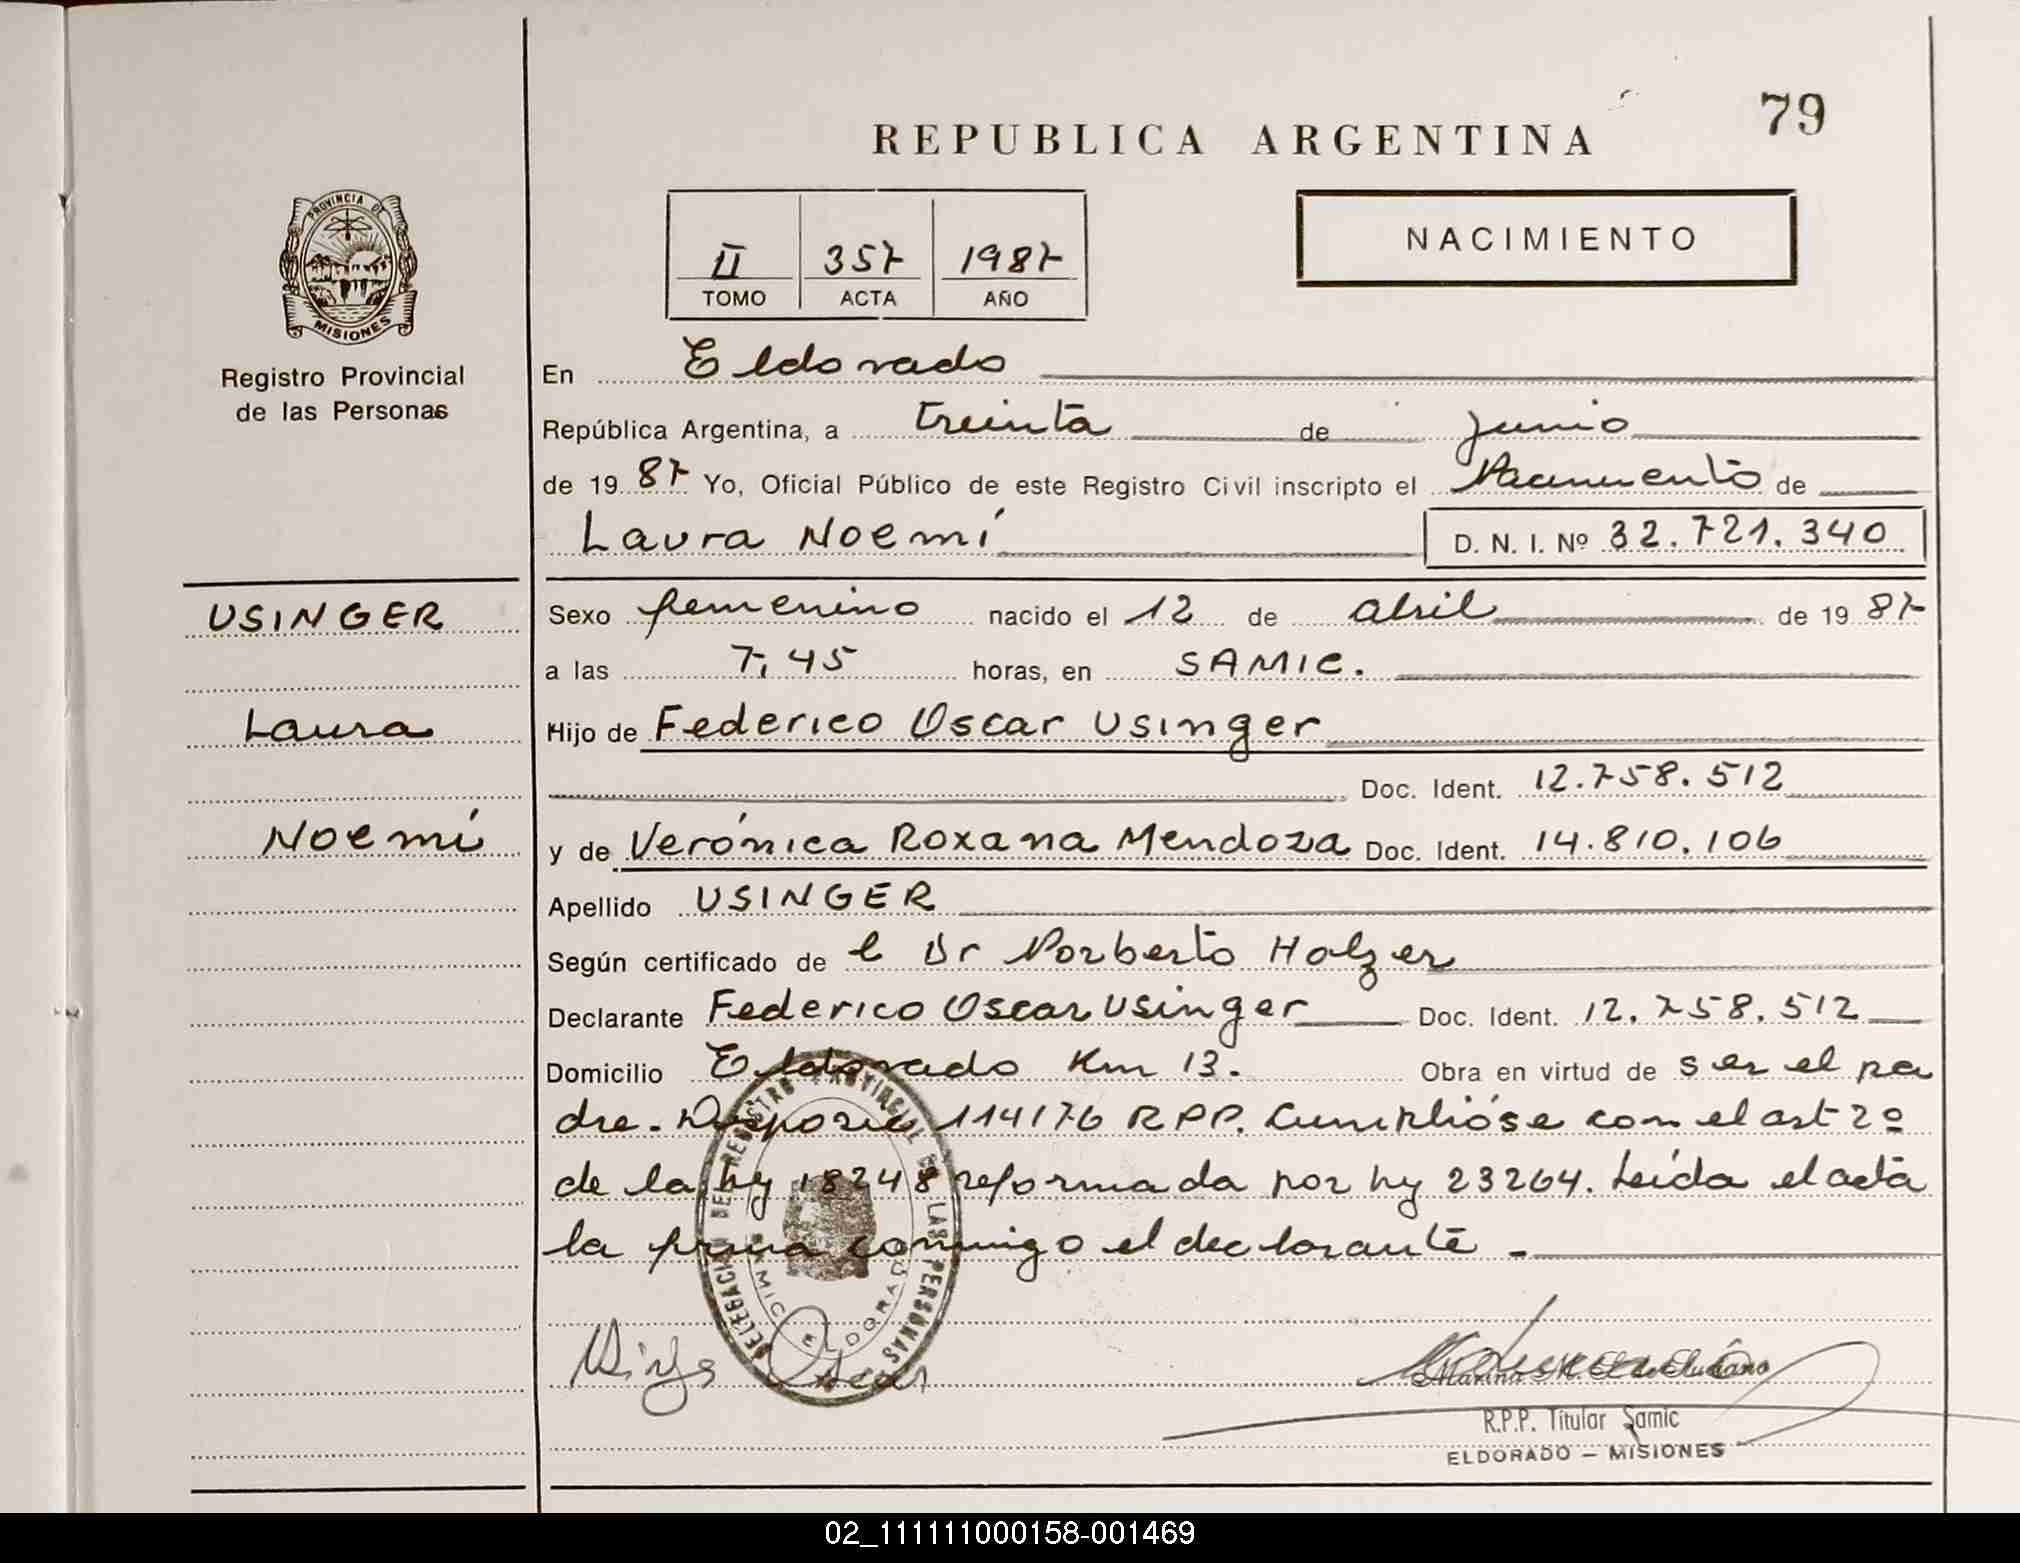 79
REPUBLICA ARGENTINA
PROVINCIA DE
MISIONES
Registro Provincial
de las Personas
II 357 1987
TOMO ACTA AÑO
NACIMIENTO
En Eldorado
República Argentina, a treinta de junio
de 19 87 Yo, Oficial Público de este Registro Civil inscripto el Nacimiento de
Laura Noemí D. N. I. Nº 32.721.340
USINGER
Laura
Noemí
Sexo femenino nacido el 12 de abril de 19 87
a las 7,45 horas, en SAMIC.
Hijo de Federico Oscar Usinger
Doc. Ident. 12.758.512
y de Verónica Roxana Mendoza Doc. Ident. 14.810.106
Apellido USINGER
Según certificado de l Dr Norberto Holzer
Declarante Federico Oscar Usinger Doc. Ident. 12.758.512
Domicilio Eldorado Km 13. Obra en virtud de ser el pa
dre. 114176 RPP. Cumplióse con el art 2º
de la ley 18248 reformada por ley 23264. Leída el acta
la firma conmigo el declarante.
DELEGACION DEL REGISTRO PROVINCIAL DE LAS PERSONAS
SAMIC ELDORADO
R.P.P. Titular Samic
ELDORADO - MISIONES
02_111111000158-001469